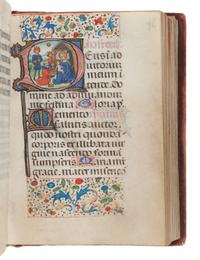 Deus in ad
iutorium
meum in
tende. Do
mine ad adiuuandū
me festina Gloria p
Memento
salutis auctor
quod nostri quondā
corporis ex illibata uir
gine nascendo formā
sumpseris Maria m
gracie mater miserico